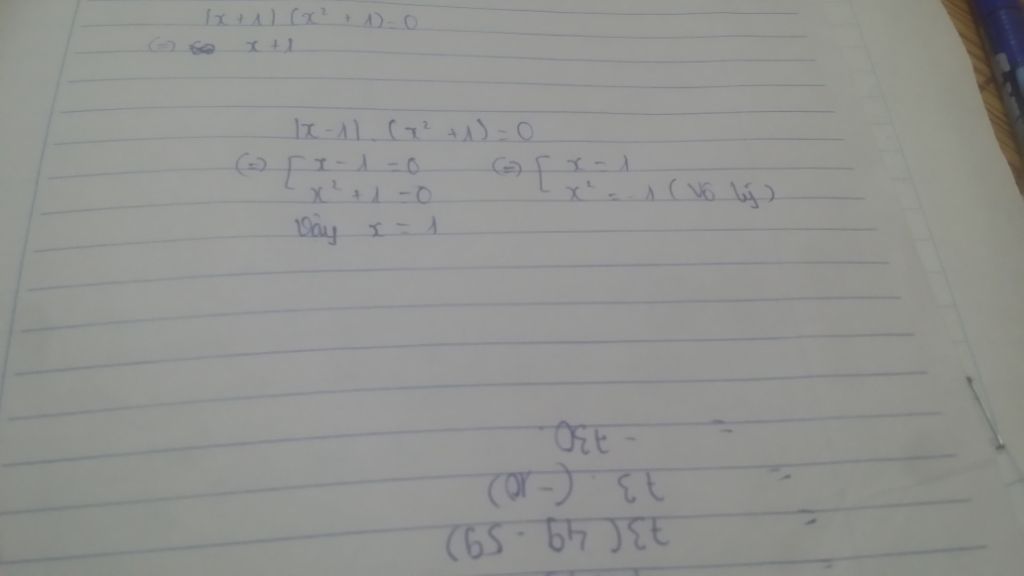 |x+1| (x² + 1) = 0
(=) x + 1
|x - 1| . (x² + 1) = 0
(=) [ x - 1 = 0 (=) [ x = 1
x² + 1 = 0 x² = -1 (Vô lý)
Vậy x = 1
= 73 ( 49 - 59)
= 73 . (-10)
= - 730